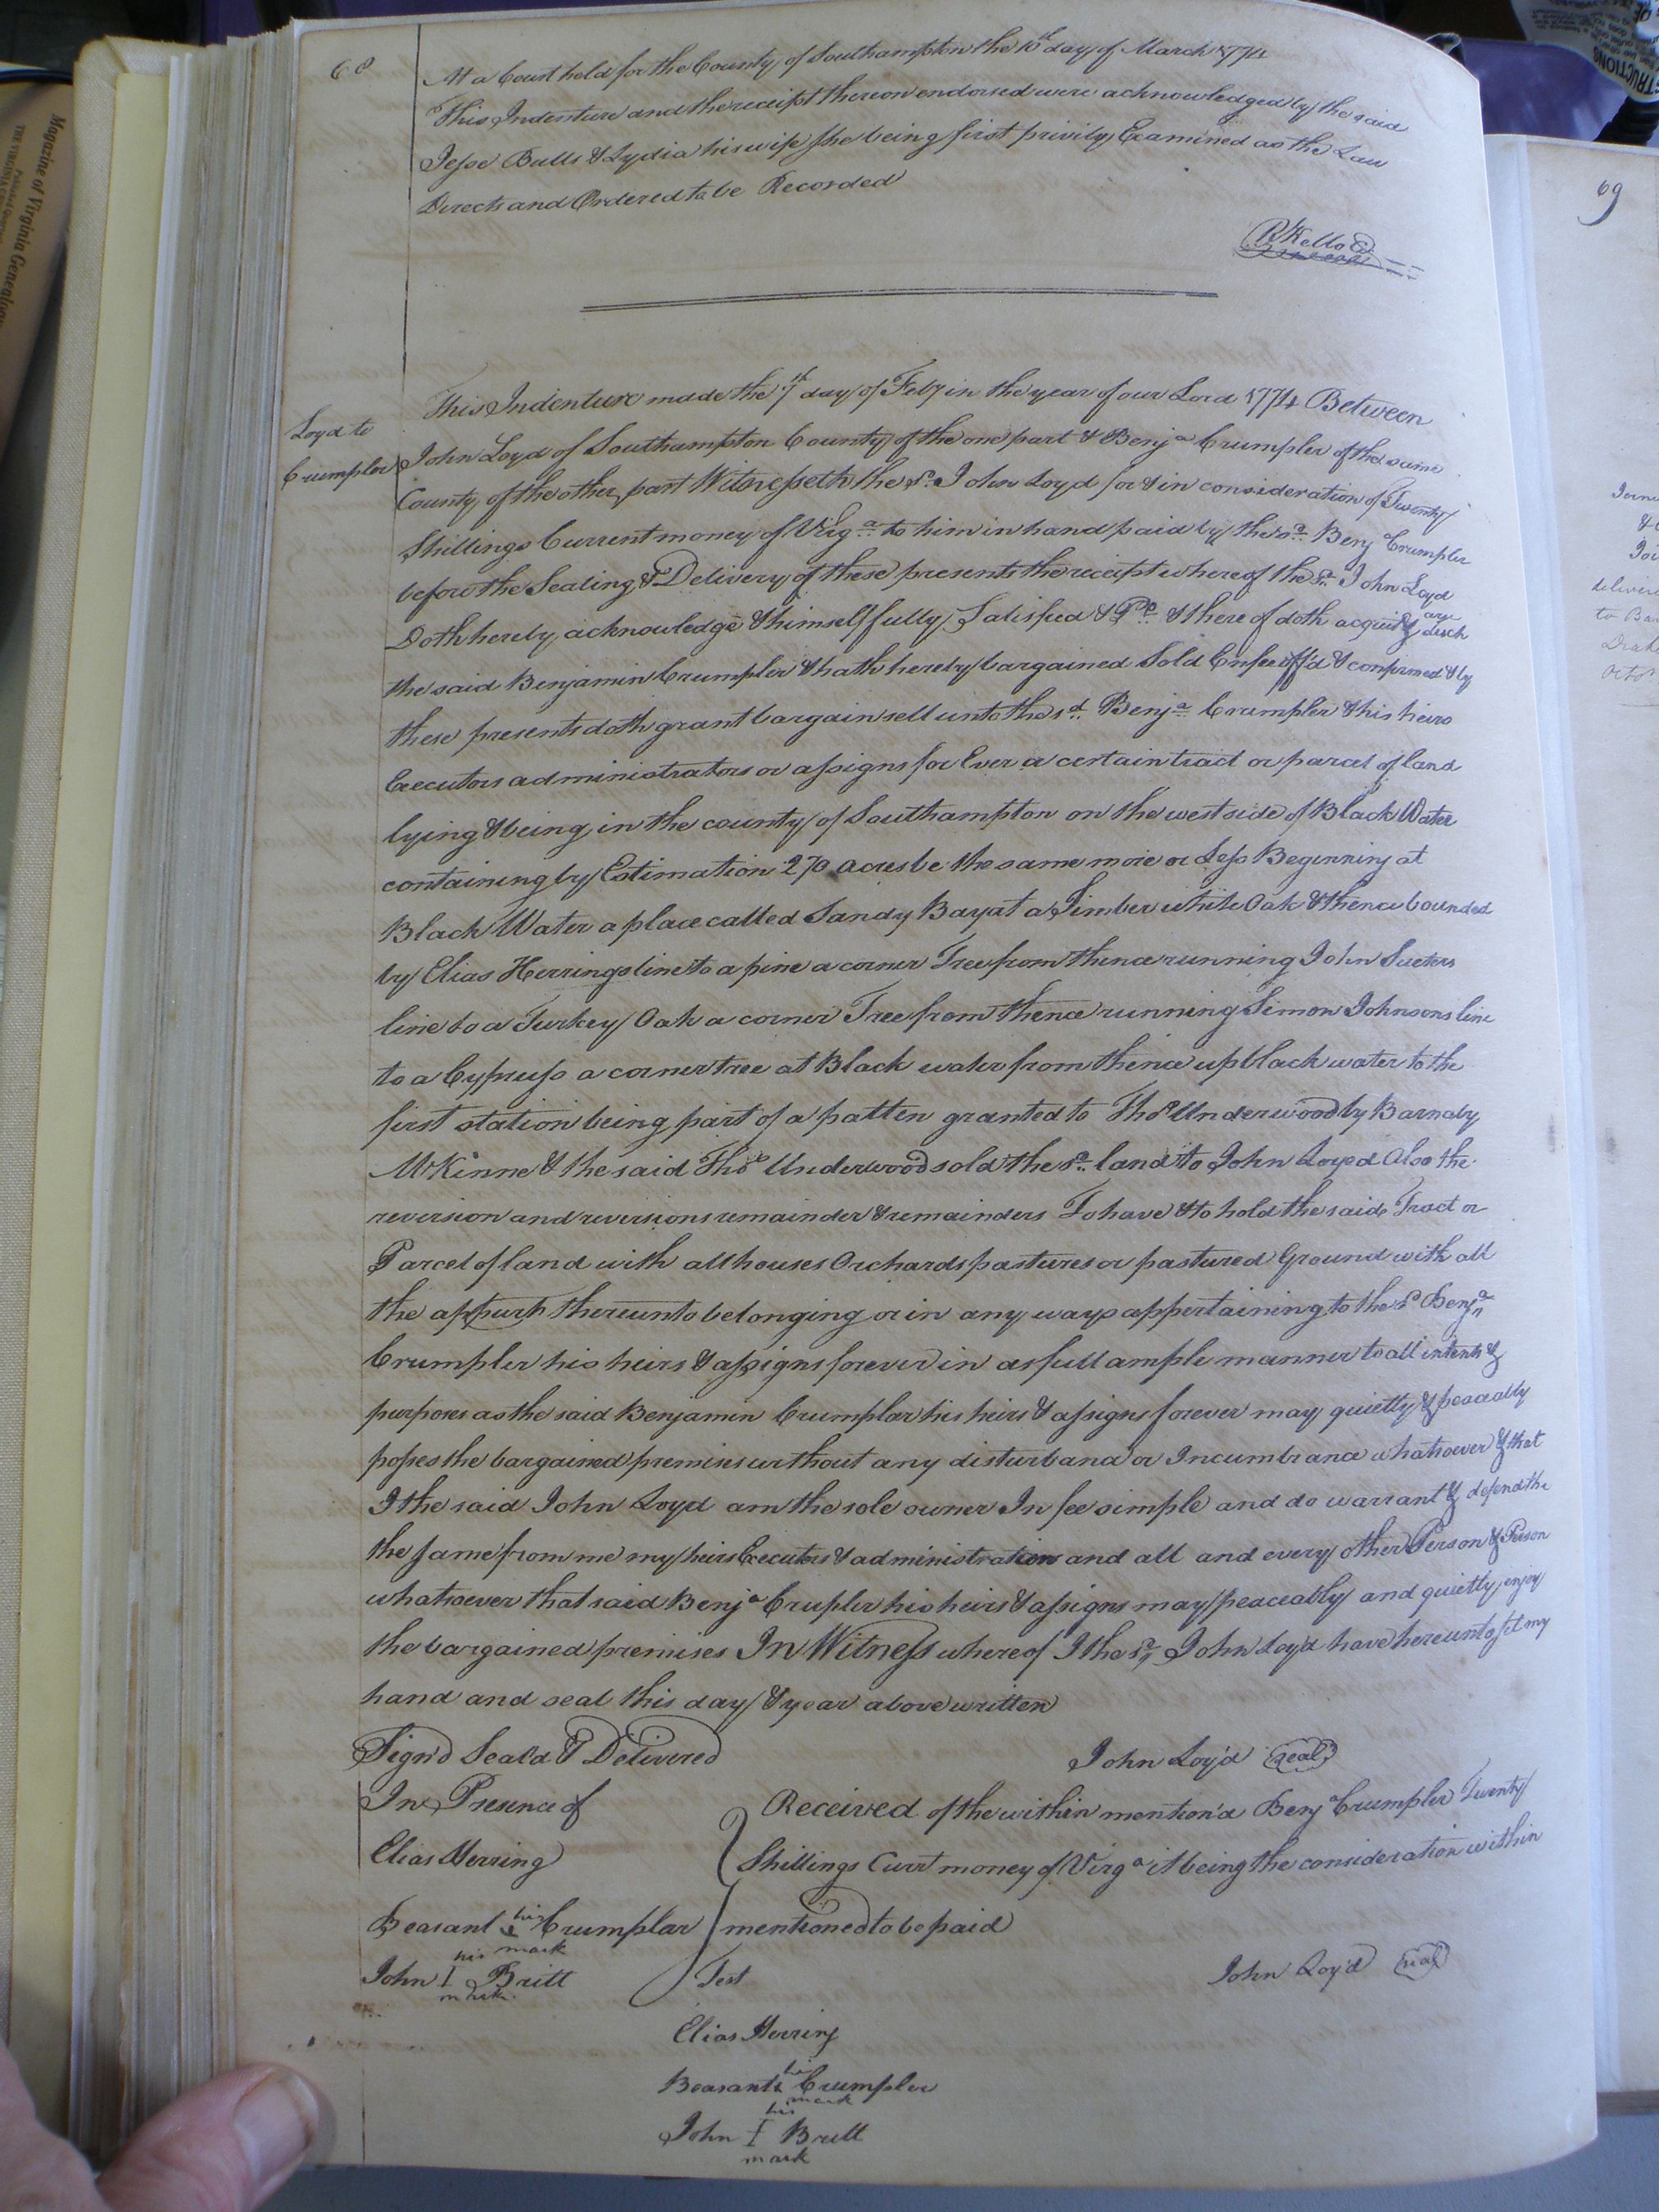 68
At a Court held for the County of Southampton the 10th day of March 1774
This Indenture and the receipt thereon endorsed were acknowledged by the said
Jesse Butts & Lydia his wife she being first privily Examined as the Law
Directs and Ordered to be Recorded
R Kello
Loyd to
Crumpler
This Indenture made the 7th day of Feby in the year of our Lord 1774 Between
John Loyd of Southampton County of the one part & Benja Crumpler of the same
County of the other part Witnesseth the sd. John Loyd for & in consideration of Twenty
Shillings Current money of Virga to him in hand paid by the sd. Benj Crumpler
before the Sealing & Delivery of these presents the receipt whereof the sd. John Loyd
Doth hereby acknowledge & himself fully Satisfied & Pd. & there of doth acquit &
the said Benjamin Crumpler & hath hereby bargained Sold Enfeoff'd & confirmed & by
these presents doth grant bargain sell unto the sd. Benja Crumpler & his heirs
Executors administrators or assigns for Ever a certain tract or parcel of land
lying & being in the county of Southampton on the west side of Black Water
containing by Estimation 270 acres be the same more or Less Beginning at
Black Water a place called Sandy Bay at a Timber white Oak & thence bounded
by Elias Herrings line to a pine a corner Tree from thence running John Sueters
line to a Turkey Oak a corner Tree from thence running Simon Johnsons line
to a Cypruss a corner tree at Black water from thence up black water to the
first station being part of a patten granted to Thos Underwood by Barnaby
McKinne & the said Thos Underwood sold the sd. land to John Loyed Also the
reversion and reversions remainder & remainders To have & to hold the said Tract or
Parcel of land with all houses Orchards pastures or pastured Ground with all
the thereunto belonging or in any ways appertaining to the sd Benja
Crumpler his heirs & assigns forever in as full ample manner to all intents &
purposes as the said Benjamin Crumplar his heirs & assigns forever may quietly & peaceably
posses the bargained premises without any disturbance or Incumbrance whatsoever & that
I the said John Loyd am the sole owner In fee simple and do warrant & defend the
the same from me my heirs Executors & administrators and all and every other Person & Person
whatsoever that said Benja Crupler his heirs & assigns may peaceably and quietly enjoy
the bargained premises In Witness whereof I the sd. John Loyd have hereunto set my
hand and seal this day & year above written
Sign'd Seal'd & Delivered John Loy'd seal
In Presence of Received of the within mention'd Benja Crumpler Twenty
Elias Herring Shillings Curr't money of Virga it being the consideration within
Beasant his Crumplar mentioned to be paid
mark
his
John I Britt Test John Loy'd seal
mark
Elias Herring
his
Beasant Crumpler
mark
his
John I Britt
mark
69